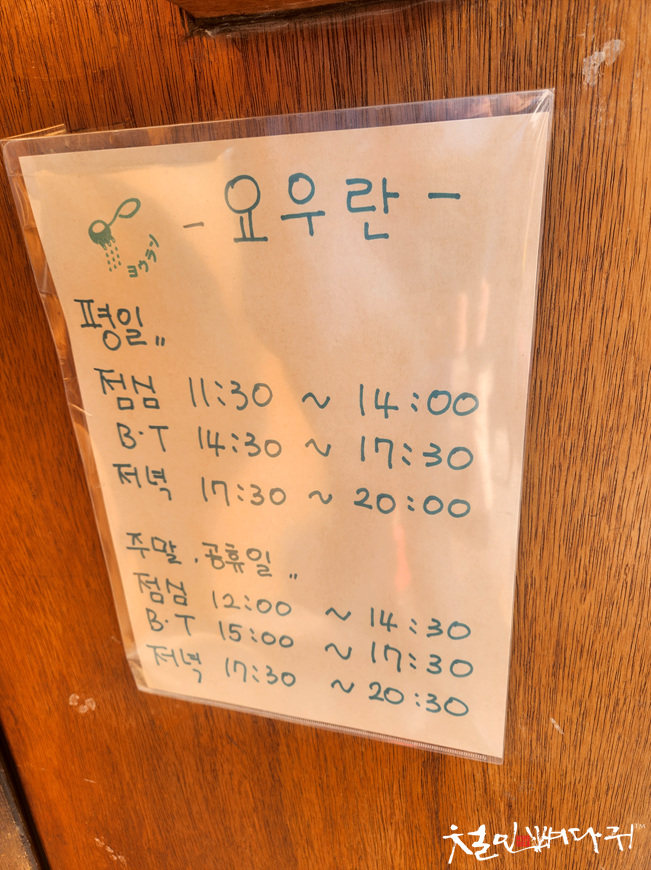 - 요우란 -
ヨウラン
평일 "
점심 11:30 ~ 14:00
B·T 14:30 ~ 17:30
저녁 17:30 ~ 20:00
주말 . 공휴일 "
점심 12:00 ~ 14:30
B·T 15:00 ~ 17:30
저녁 17:30 ~ 20:30